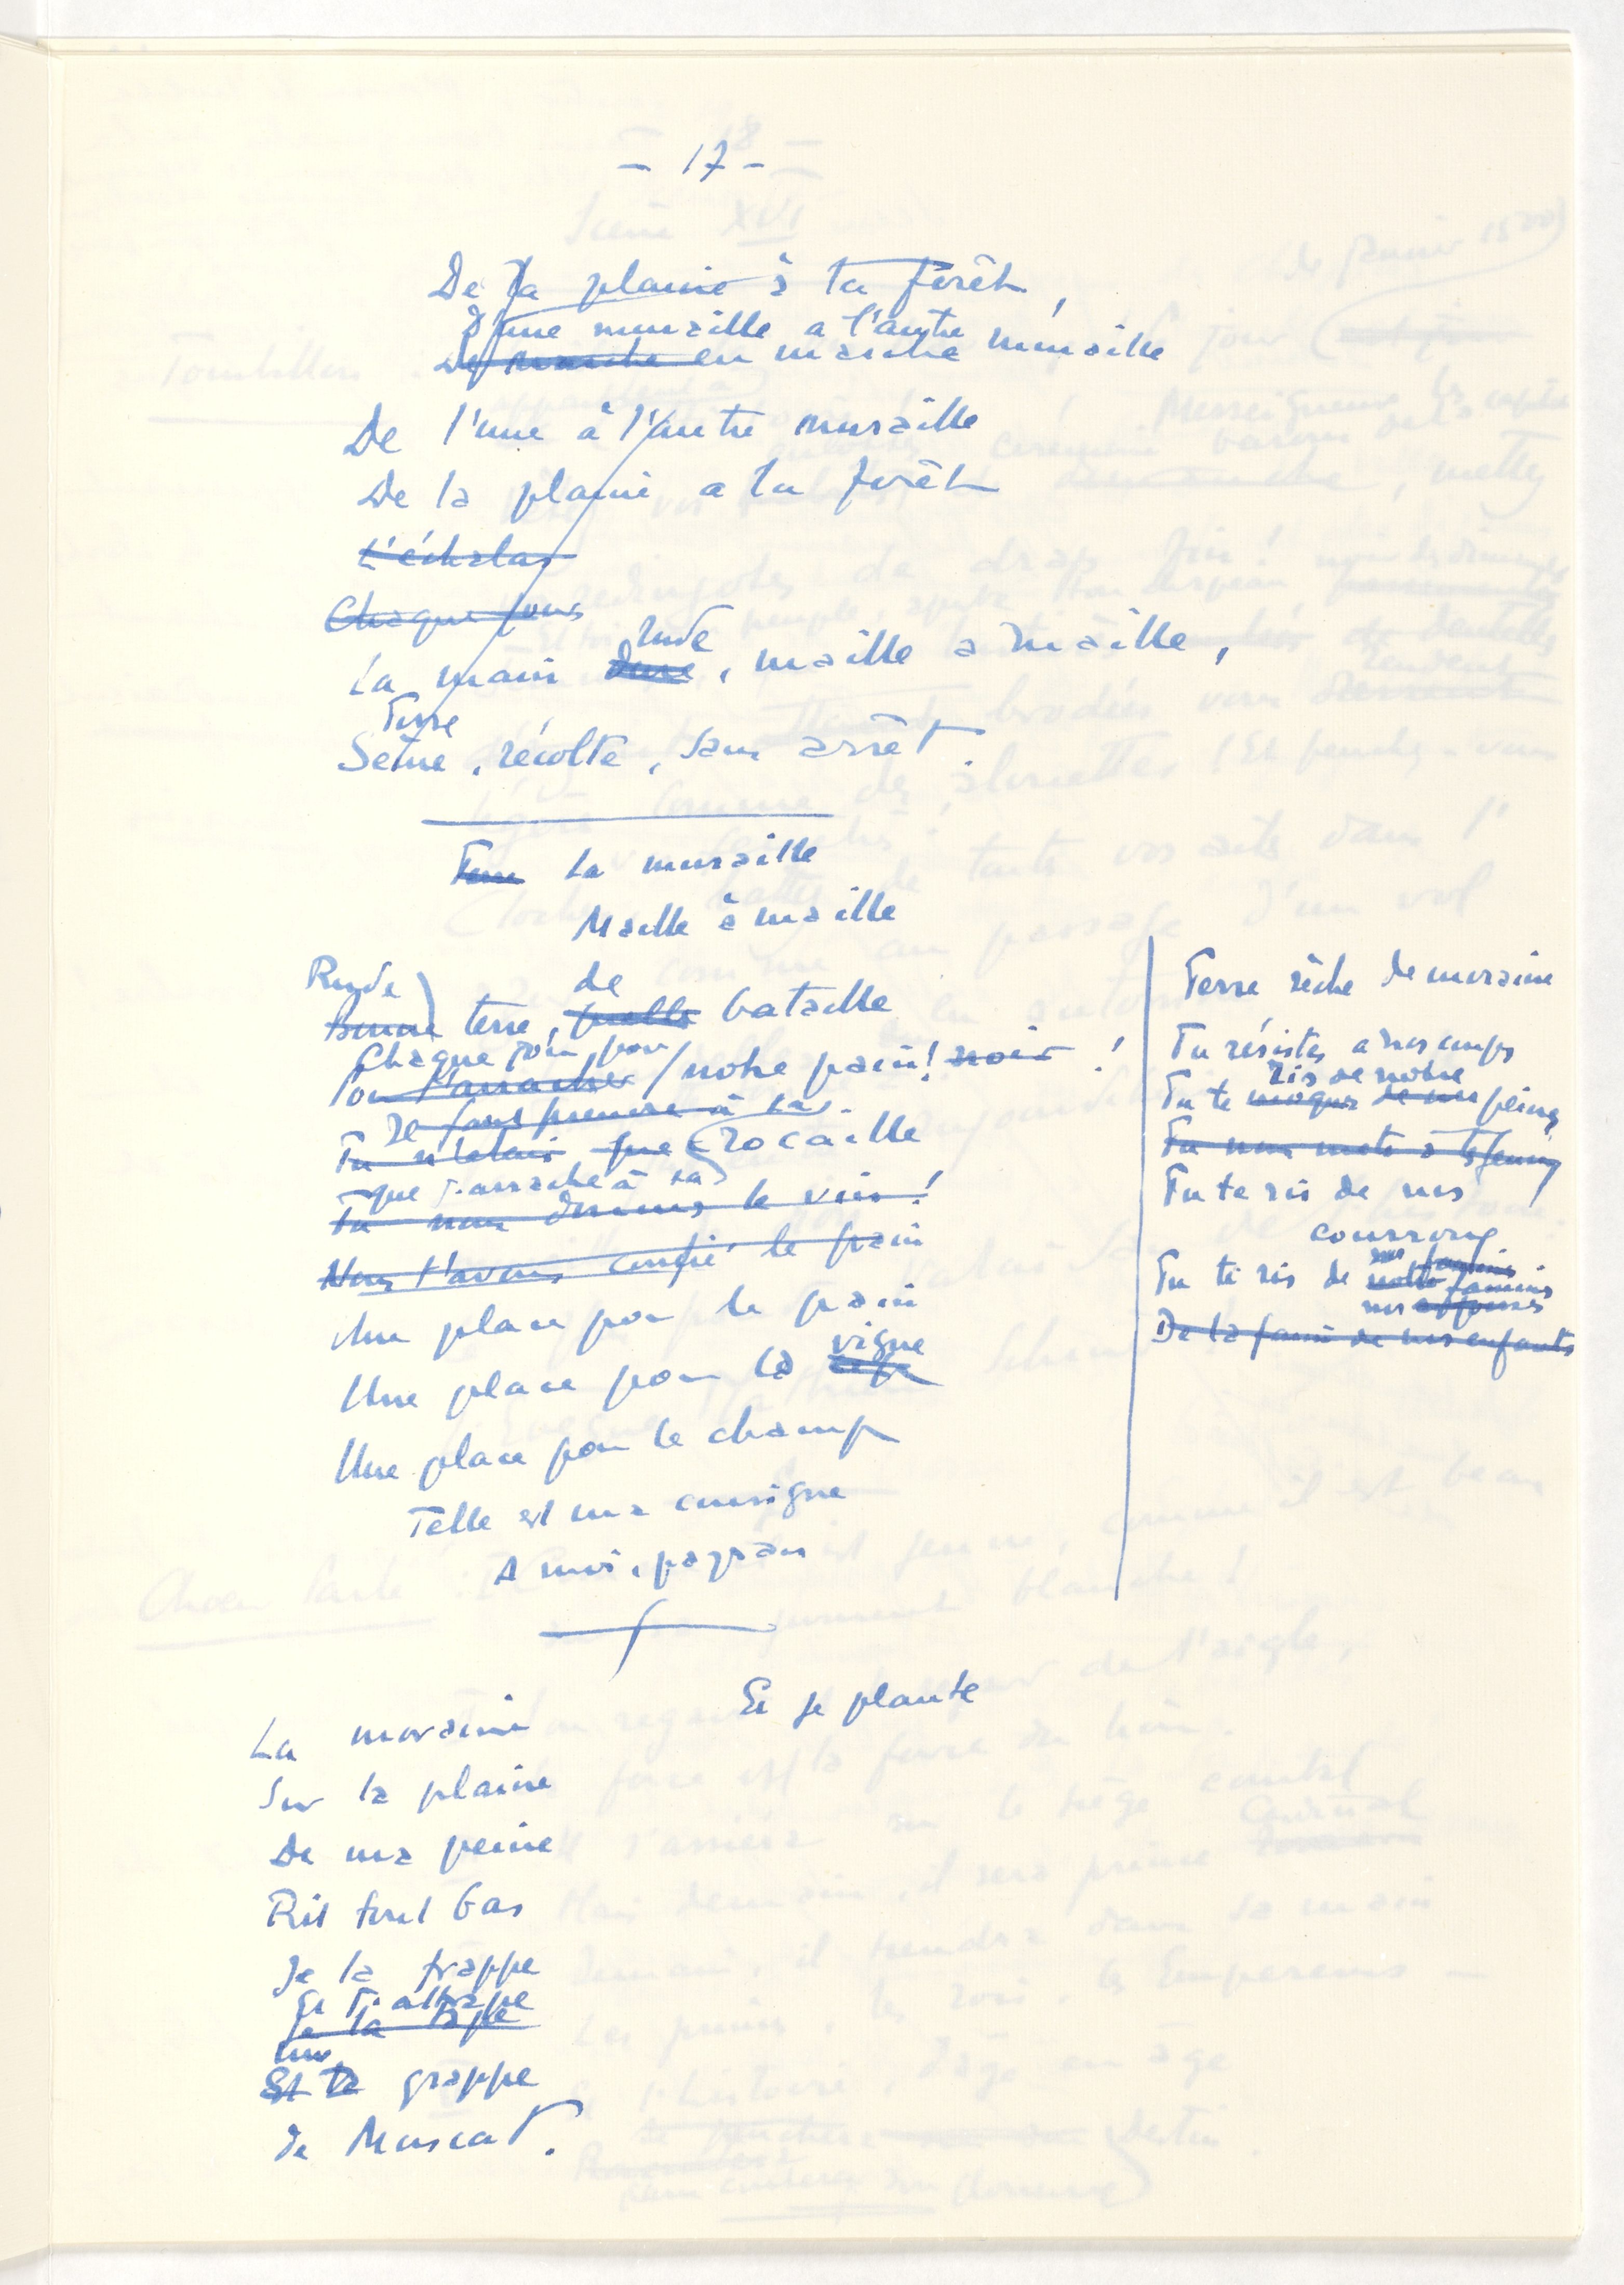 - 17 -
De la plaine à la forêt,
D'une muraille a l'autre muraille
De marche en marche
De l'une à l'autre muraille
De la plaine a la forêt
L'échalas
Chaque jour
rude
La main dure, maille a maille,
Terre
Sème, récolte, sans arrêt
Terre La muraille
Maille à maille
Rude de
Bonne terre, quelle bataille
Chaque jour, pour
notre pain! noir !
Je fais prendre à ta
Tu n'étais que rocaille
que j'arrache à ta
Tu nous donnes le vin!
Nous t'avons confié le pain
Une place pour le pain
vigne
Une place pour la
Une place pour le champ
Telle est ma consigne
A moi, paysan
Terre rêche de moraine
Tu résistes a nos coups
ris de notre
Tu te moques de nos peines
Tu nous mets à tes genoux
Tu te ris de nos
courroux
nos famines
Tu te ris de notre famine
nos
De la faim de nos enfants
Et je plante
La moraine
Sur la plaine
De ma peine
Rit tout bas
Je la frappe
Et t'attrape
Je la tape
Et ta grappe
de Muscat.